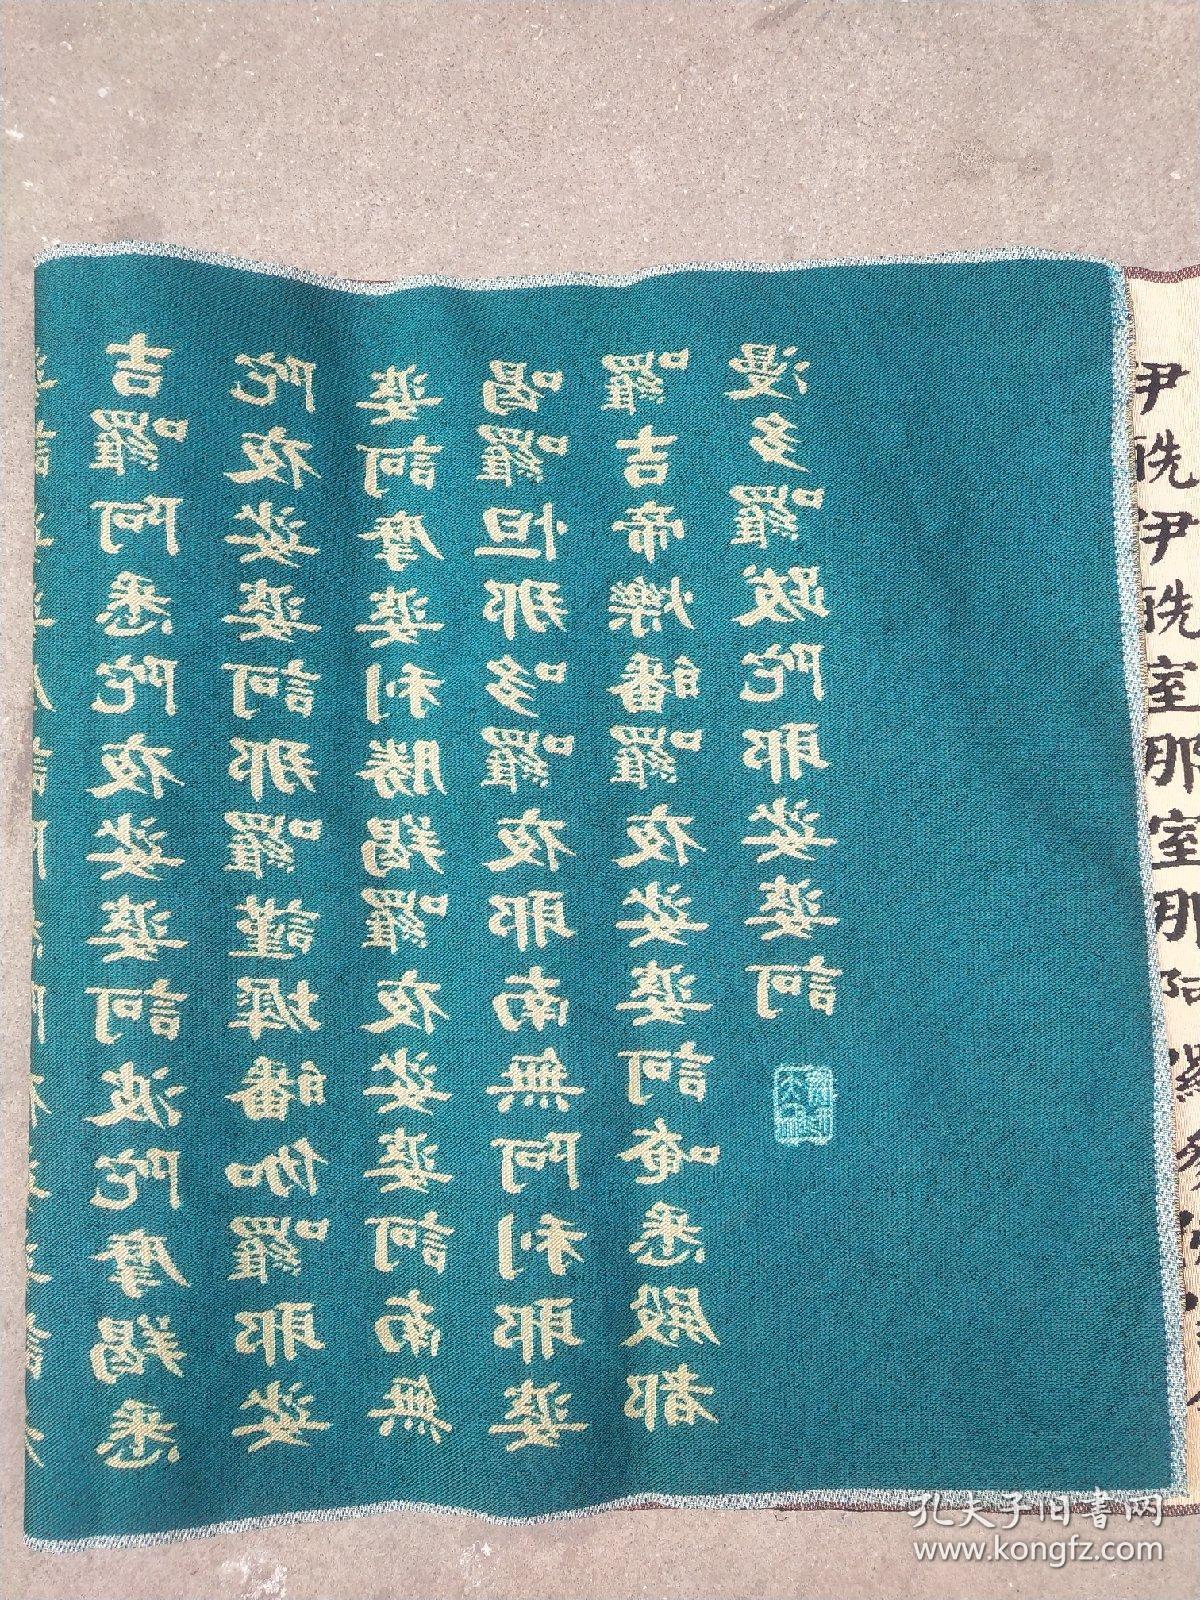 吉囉阿悉陀夜娑婆訶波陀摩羯悉
陀夜娑婆訶那囉謹墀皤伽囉耶娑
婆訶摩婆利勝羯囉夜娑婆訶南無
喝囉怛那哆囉夜耶南無阿利耶婆
囉吉帝爍皤囉夜娑婆訶唵悉殿都
漫多囉跋陀耶娑婆訶
室那室那
孔夫子旧书网
www.kongfz.com